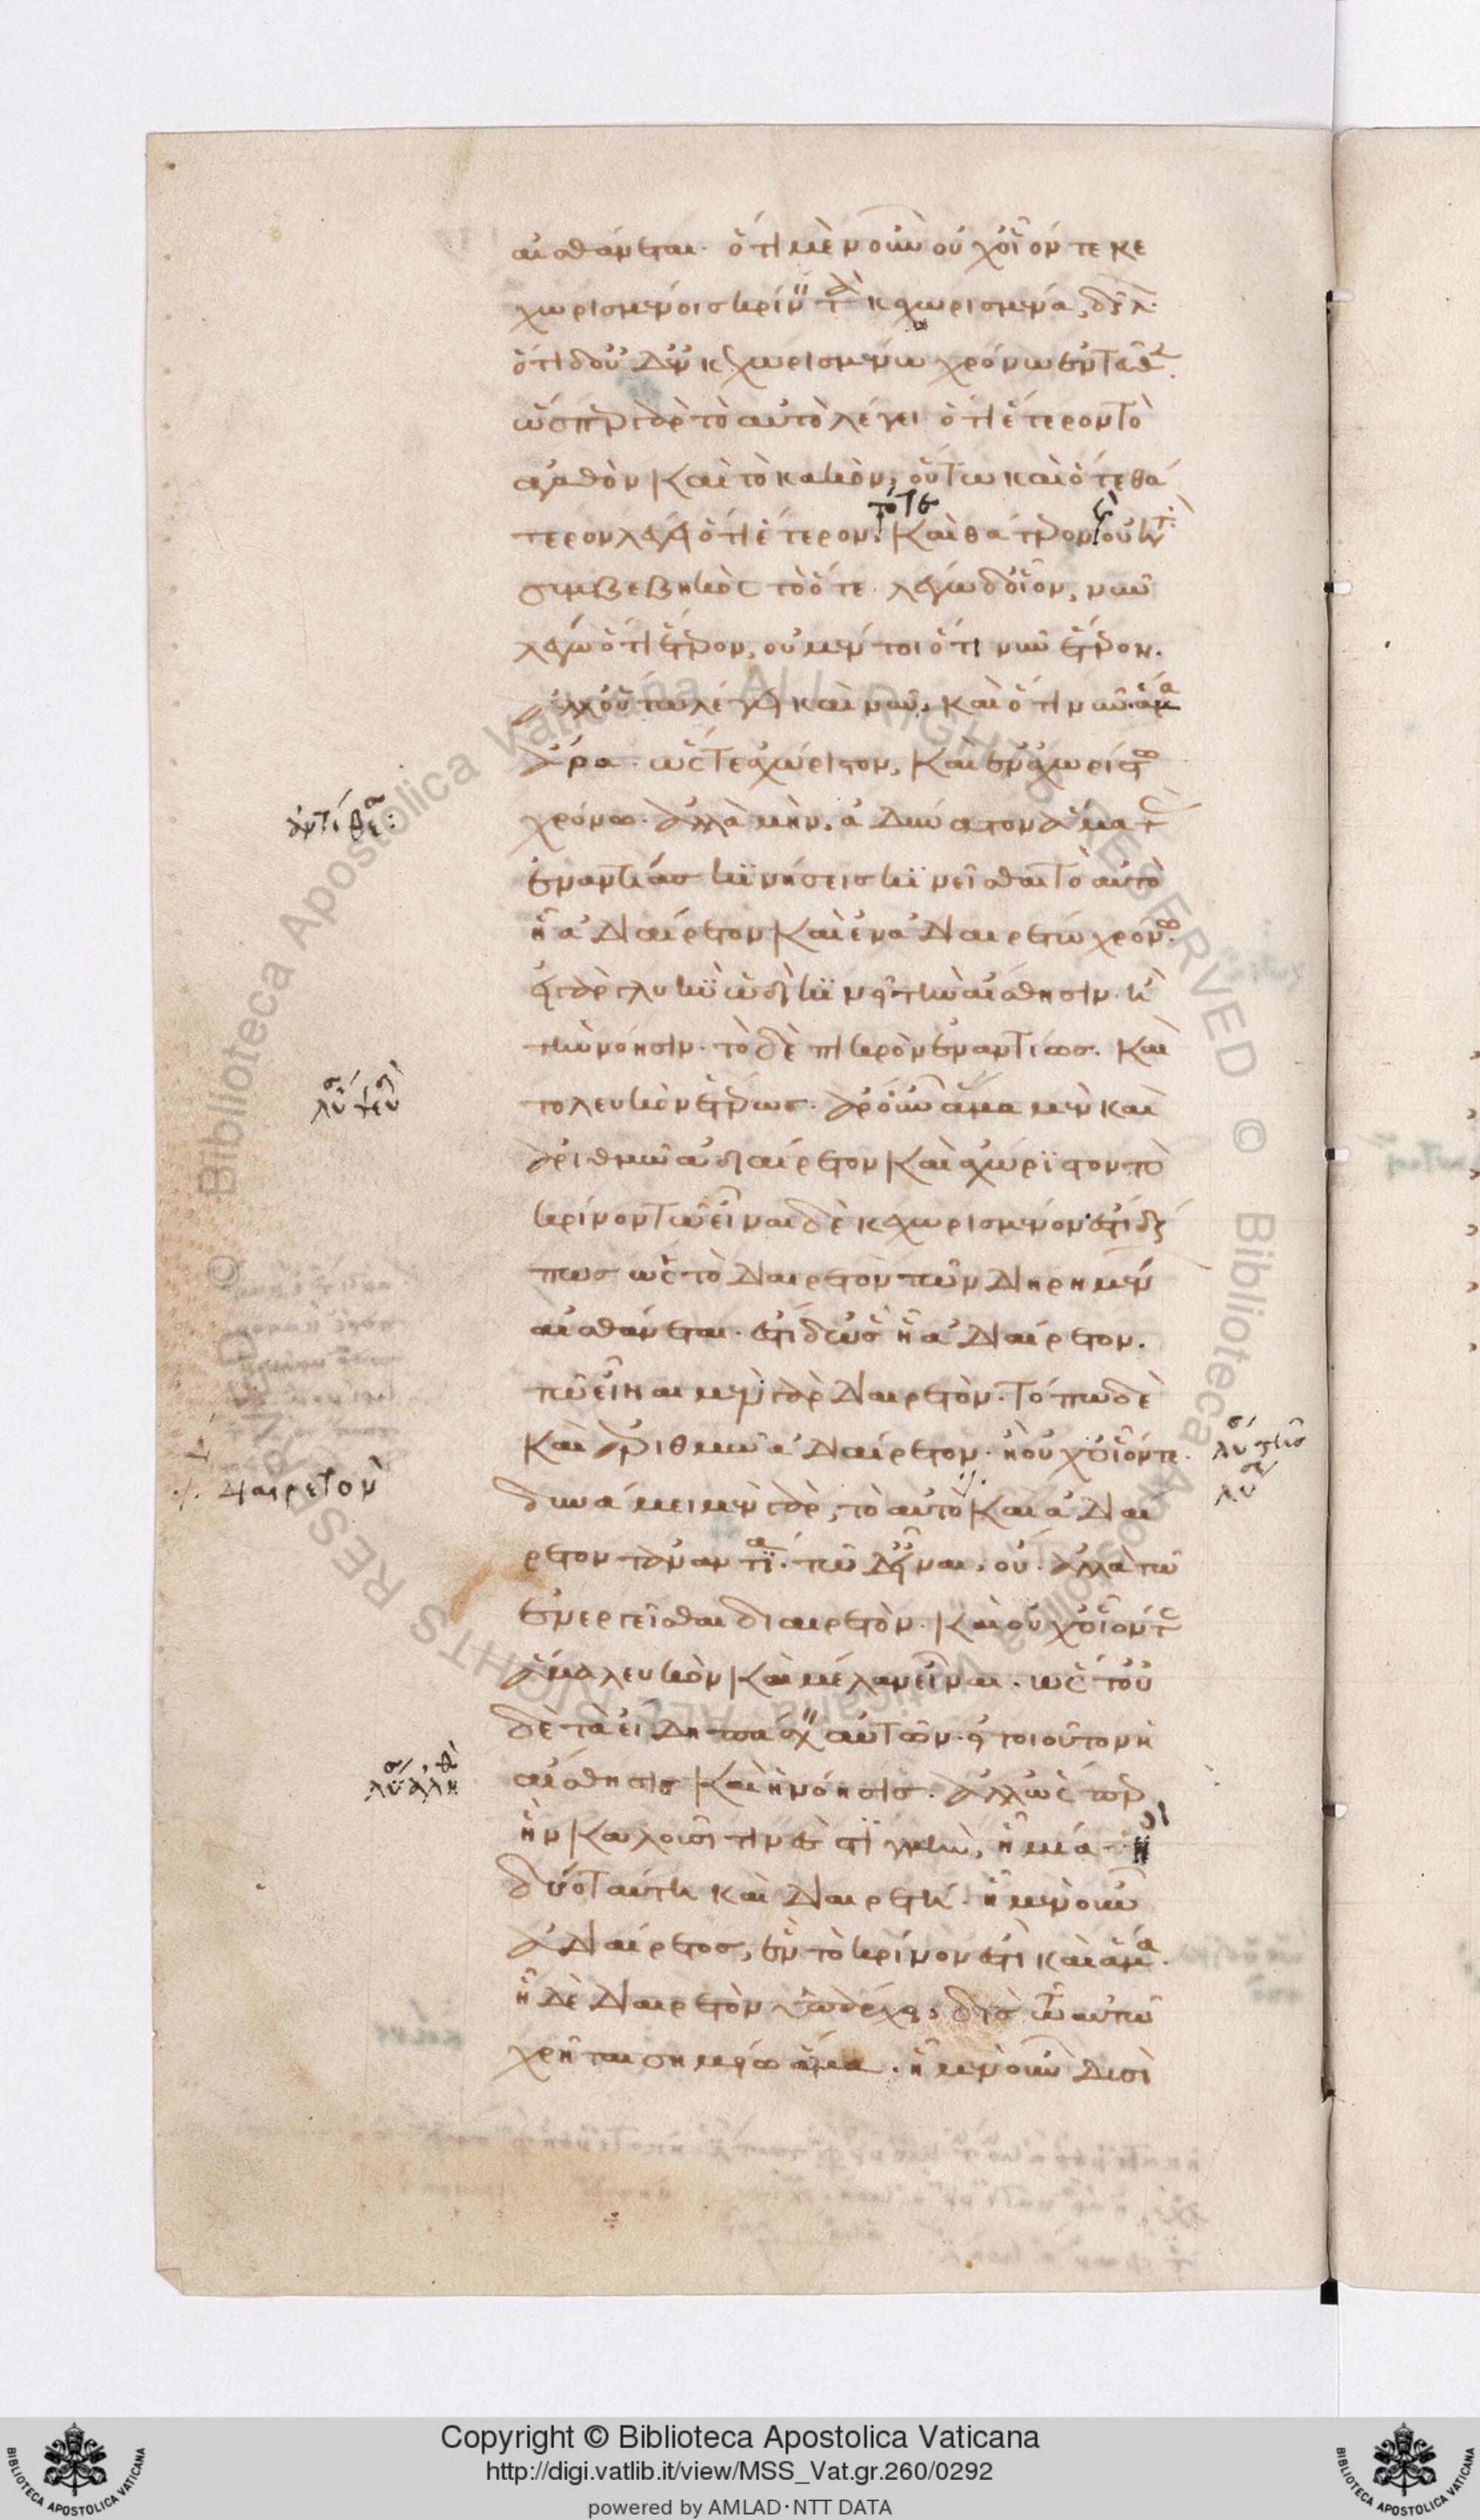 αἰσθάνεται. ὅτι μὲν οὖν οὐχ οἷόν τε κε
χωρισμένοις κρίνειν τὰ κεχωρισμένα, δῆλον.
ὅτι δ' οὐδ' ἐν κεχωρισμένω χρόνω ἐντεῦθεν.
ὥσπερ γὰρ τὸ αὐτὸ λέγει ὅτι ἕτερον τὸ
ἀγαθὸν καὶ τὸ κακὸν, οὕτω καὶ ὅτε θά
τότε
τερον λέγει ὅτι ἕτερον. καὶ θάτερον οὐ κατὰ
συμβεβηκὸς τὸ ὅτε. λέγω δ' οἷον, νῦν
λέγω ὅτι ἕτερον, οὐ μέντοι ὅτι νῦν ἕτερον.
ἀλλ' οὕτω λέγει καὶ νῦν, καὶ ὅτι νῦν. ἅμα
ἄρα. ὥστε ἀχώριστον, καὶ ἐν ἀχωρίστω
ἀντίθεσ:
χρόνω. ἀλλὰ μὴν, ἀδύνατον ἅμα τὰς
ἐναντίας κινήσεις κινεῖσθαι τὸ αὐτὸ
ἧ ἀδιαίρετον καὶ ἐν ἀδιαιρέτω χρόνω.
εἰ γὰρ γλυκὺ ὡδὶ κινεῖ τὴν αἴσθησιν κ
τὴν νόησιν. τὸ δὲ πικρὸν ἐναντίως. καὶ
το λευκὸν ἑτέρως. ἆρ' οὖν ἅμα μὲν καὶ
ἀριθμῶ ἀδιαίρετον καὶ ἀχώριστον τὸ
κρίνον τῶ εἶναι δὲ κεχωρισμένον. ἔστι δή
πως ὡς τὸ διαιρετὸν τῶν διηρημένων
αἰσθάνεται. ἔστι δ' ὡς ἧ ἀδιαίρετον.
τῶ εἶναι μὲν γὰρ διαιρετὸν. τόπω δὲ
καὶ ἀριθμῶ ἀδιαίρετον. ἢ οὐχ οἷόν τε.
διαιρετὸν
δυνάμει μὲν γὰρ, τὸ αὐτὸ καὶ ἀδιαί
ρετον τἀναντία. τῶ δ' εἶναι, οὔ. ἀλλὰ τῶ
ἐνεργεῖσθαι διαιρετὸν. καὶ οὐχ οἷόν τε
ἅμα λευκὸν καὶ μέλαν εἶναι. ὥστ' οὐ
δὲ τὰ εἴδη πάσχειν αὐτῶν. εἰ τοιοῦτον ἡ
αἴσθησις καὶ ἡ νόησις. ἀλλ' ὥσπερ
ἣν καλοῦσί τινες στιγμὴν, ἧ μία ἢ
δύο ταύτη καὶ διαιρετή. ἧ μὲν οὖν
ἀδιαίρετος, ἓν τὸ κρίνον ἐστὶ καὶ ἅμα.
ἧ δὲ διαιρετὸν ὑπάρχει, δὶς τῶ αὐτῶ
χρῆται σημείω ἅμα. ἧ μὲν οὖν δυσὶ
Copyright © Biblioteca Apostolica Vaticana
http://digi.vatlib.it/view/MSS_Vat.gr.260/0292
powered by AMLAD·NTT DATA